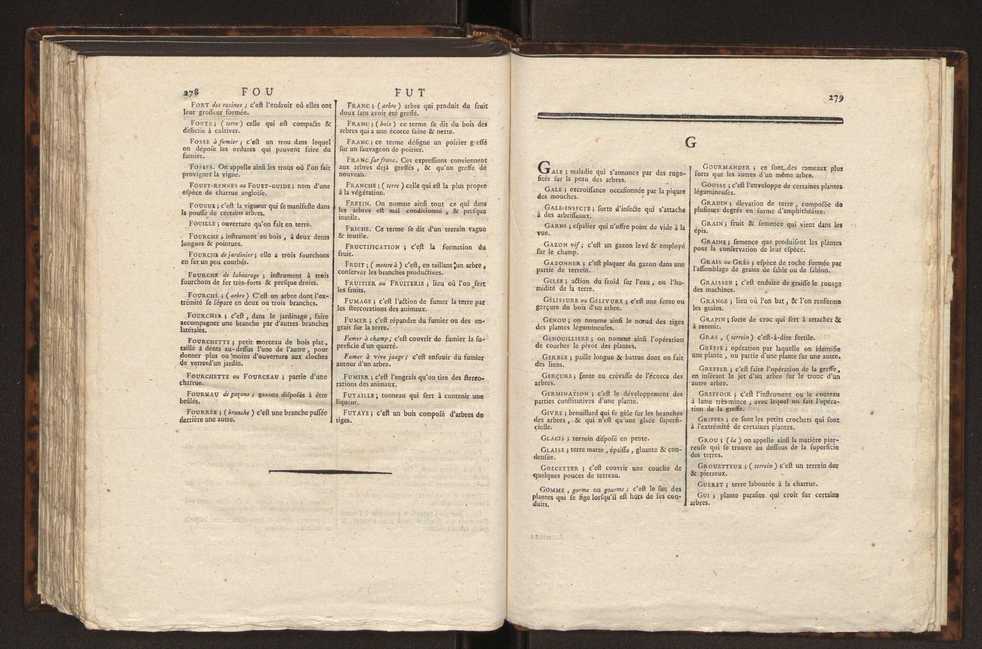 278 FOU FUT
FORT des racines ; c'est l'endroit où elles ont
leur grosseur formée.
FORTE ; ( terre ) celle qui est compacte &
difficile à cultiver.
FOSSE à fumier ; c'est un trou dans lequel
on dépose les ordures qui peuvent faire du
fumier.
FOSSES. On appelle ainsi les trous où l'on fait
provigner la vigne.
FOUET-RENNES ou FOUET-GUIDE ; nom d'une
espèce de charrue angloise.
FOUGUE ; c'est la vigueur qui se manifeste dans
la pousse de certains arbres.
FOUILLE ; ouverture qu'on fait en terre.
FOURCHE ; instrument au bois , à deux dents
longues & pointues.
FOURCHE de jardinier ; elle a trois fourchons
en fer un peu courbés.
FOURCHE de labourage ; instrument à trois
fourchons de fer très-forts & presque droits.
FOURCHÉ ; ( arbre ) C'est un arbre dont l'ex-
trémité se sépare en deux ou trois branches.
FOURCHER ; c'est , dans le jardinage , faire
accompagner une branche par d'autres branches
latérales.
FOURCHETTE ; petit morceau de bois plat,
taillé à dents au-dessus l'une de l'autre , pour
donner plus ou moins d'ouverture aux cloches
de verre d'un jardin.
FOURCHETTE ou FOURCEAU ; partie d'une
charrue.
FOURNEAU de gazons ; gazons disposés à être
brûlés.
FOURRÉE ; ( branche ) c'est une branche passée
derrière une autre.
FRANC ; ( arbre ) arbre qui produit du fruit
doux sans avoir été greffé.
FRANC ; ( bois ) ce terme se dit du bois des
arbres qui a une écorce saine & nette.
FRANC ; ce terme désigne un poirier greffé
sur un sauvageon de poirier.
FRANC sur franc. Ces expressions conviennent
aux arbres déjà greffés , & qu'on greffe de
nouveau.
FRANCHE ; ( terre ) celle qui est la plus propre
à la végétation.
FRETIN. On nomme ainsi tout ce qui dans
les arbres est mal conditionné , & presque
inutile.
FRICHE. Ce terme se dit d'un terrein vague
& inutile.
FRUCTIFICATION ; c'est la formation du
fruit.
FRUIT ; ( mettre à ) c'est, en taillant un arbre ,
conserver les branches productives.
FRUITIER ou FRUITERIE ; lieu où l'on serre
les fruits.
FUMAGE ; c'est l'action de fumer la terre par
les stercorations des animaux.
FUMER ; c'est répandre du fumier ou des en-
grais sur la terre.
Fumer à champ ; c'est couvrir de fumier la su-
perficie d'un quarré.
Fumer à vive jauge ; c'est enfouir du fumier
autour d'un arbre.
FUMIER ; c'est l'engrais qu'on tire des sterco-
rations des animaux.
FUTAILLE ; tonneau qui sert à contenir une
liqueur.
FUTAYE ; c'est un bois composé d'arbres de
tiges.
279
G
GALE ; maladie qui s'annonce par des rugo-
sités sur la peau des arbres.
GALE ; excroissance occasionnée par la piqure
des mouches.
GALE-INSECTE ; sorte d'insecte qui s'attache
à des arbrisseaux.
GARNI ; espalier qui n'offre point de vide à la
vue.
GAZON vif ; c'est un gazon levé & employé
sur le champ.
GAZONNER ; c'est plaquer du gazon dans une
partie de terrein.
GELÉE ; action du froid sur l'eau , ou l'hu-
midité de la terre.
GÉLISSURE ou GÉLIVURE ; c'est une fente ou
gerçure du bois d'un arbre.
GENOU ; on nomme ainsi le nœud des tiges
des plantes légumineuses.
GENOUILLIÈRE ; on nomme ainsi l'opération
de coucher le pivot des plantes.
GERBLE ; paille longue & battue dont on fait
des liens.
GERÇURE ; fente ou crevasse de l'écorce des
arbres.
GERMINATION ; c'est le développement des
parties constitutives d'une plante.
GIVRE ; brouillard qui se gèle sur les branches
des arbres , & qui n'est qu'une glace superfi-
cielle.
GLACIS ; terrein disposé en pente.
GLAISE ; terre matte , épaisse , gluante & con-
densée.
GOBETTER ; c'est couvrir une couche de
quelques pouces de terreau.
GOMME , gorme ou gourme ; c'est le suc des
plantes qui se fige lorsqu'il est hors de ses con-
duits.
GOURMANDER ; ce sont des rameaux plus
forts que les autres d'un même arbre.
GOUSSE ; c'est l'enveloppe de certaines plantes
légumineuses.
GRADIN ; élévation de terre , composée de
plusieurs degrés en forme d'amphithéatre.
GRAIN ; fruit & semence qui vient dans les
épis.
GRAINE ; semence que produisent les plantes
pour la conservation de leur espèce.
GRAIS ou GRÈS ; espèce de roche formée par
l'assemblage de grains de sable ou de sablon.
GRAISSER ; c'est enduire de graisse le rouage
des machines.
GRANGE ; lieu où l'on bat , & l'on renferme
les grains.
GRAPIN ; sorte de croc qui sert à attacher &
à retenir.
GRAS , ( terrein ) c'est-à-dire fertile.
GREFFE ; opération par laquelle on identifie
une plante , ou partie d'une plante sur une autre.
GREFFER ; c'est faire l'opération de la greffe,
en insérant le jet d'un arbre sur le tronc d'un
autre arbre.
GREFFOIR ; c'est l'instrument ou le couteau
à lame très-mince , avec lequel on fait l'opéra-
tion de la greffe.
GRIFFES ; ce sont les petits crochets qui sont
à l'extrémité de certaines plantes.
GROU ; ( le ) on appelle ainsi la matière pier-
reuse qui se trouve au dessous de la superficie
des terres.
GROUETTEUX ; ( terrein ) c'est un terrein dur
& pierreux.
GUERET ; terre labourée à la charrue.
GUI ; plante parasite qui croît sur certains
arbres.